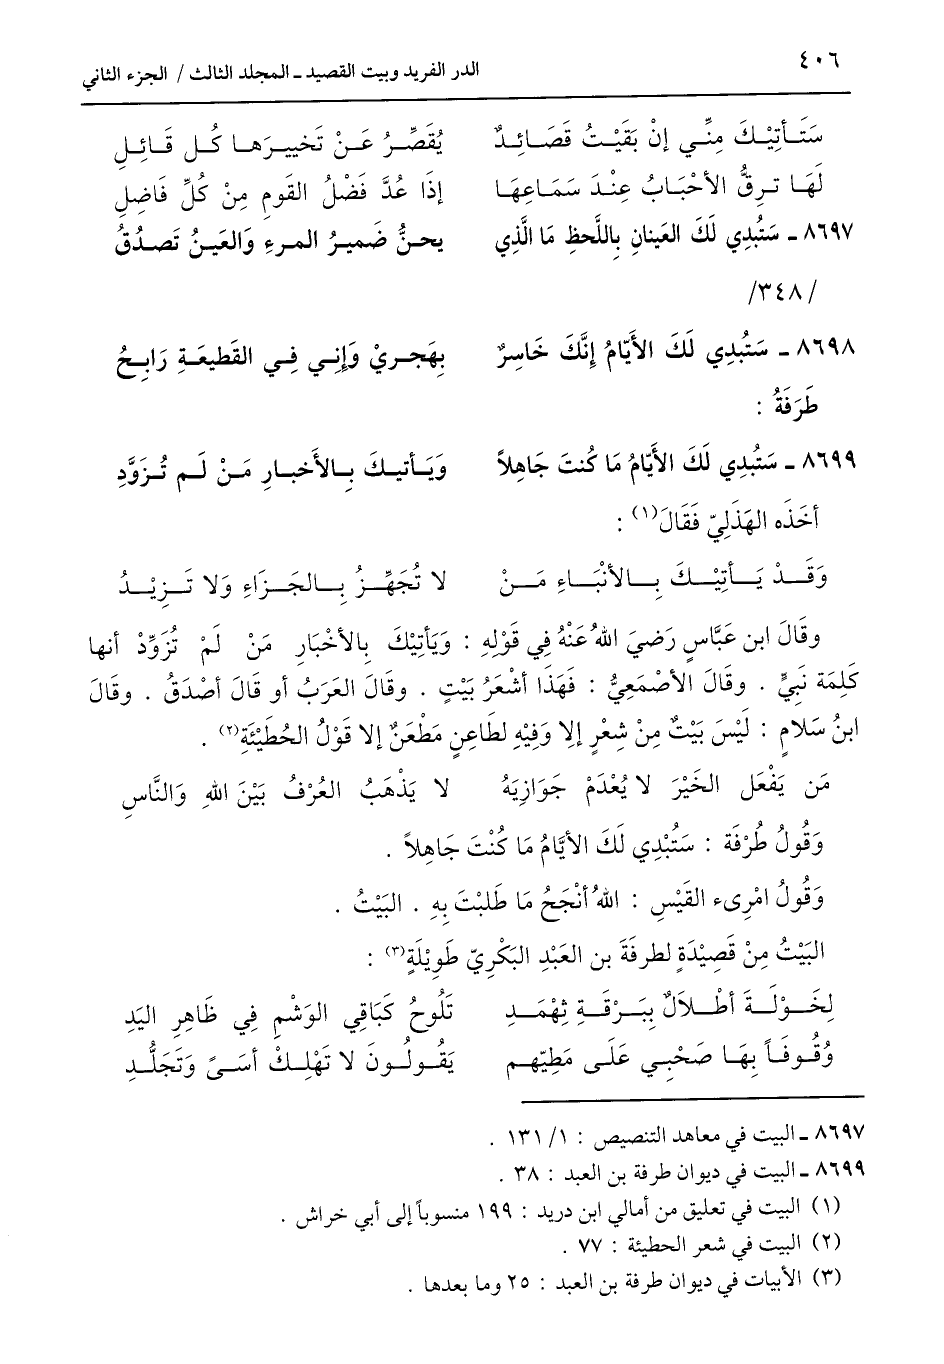 ٤٠٦
الدر الفريد وبيت القصيد ـ المجلد الثالث / الجزء الثاني
سَتَأتِيْكَ مِنِّي إنْ بَقَيْتُ قَصَائِدٌ يُقَصِّرُ عَنْ تَحْييرَها كُل قَائِلِ
لَهَا تَرقُّ الأحْبَابُ عِنْدَ سَمَاعِهَا إذَا عُدَّ فَضْلُ القَومِ مِنْ كُلِّ فَاضِلِ
٨٦٩٧ ـ سَتُبْدِي لَكَ العَينَانِ بِاللَّحظِ مَا الَّذِي يحنُّ ضَمِيرُ المرءِ وَالعَينُ تَصدُقُ
/٣٤٨/
٨٦٩٨ ـ سَتُبْدِي لَكَ الأيَّامُ إنَّكَ خَاسِرٌ بِهَجرِيْ وَإنِي فِي القَطِيعَةِ رَابِحُ
طَرَفَةُ :
٨٦٩٩ ـ سَتُبْدِي لَكَ الأَيَّامُ مَا كُنتَ جَاهِلاً وَيَأتيكَ بِالأخبارِ مَنْ لَم تُزوَّدِ
أخَذَه الهَذَلِيّ فَقَالَ(١) :
وَقَدْ يَأتِيْكَ بِالأنْبَاءِ مَنْ لا تُجَهِّزُ بِالجَزَاءِ وَلا تَزِيْدُ
وقَالَ ابن عَبَّاسٍ رَضِيَ اللهُ عَنْهُ فِي قَوْلِهِ : وَيَأتِيْكَ بِالأخْبَارِ مَنْ لَمْ تُزَوِّدْ أنها
كَلِمَة نَبِيٍّ . وقَالَ الأصْمَعِيُّ : فَهَذَا أشْعَرُ بَيْتٍ . وقَالَ العَرَبُ أو قَالَ أصْدَقُ . وقَالَ
ابنُ سَلَامٍ : لَيْسَ بَيْتٌ مِنْ شِعْرٍ إلا وَفِيْهِ لطَاعِنٍ مَطْعَنٌ إلا قَوْلُ الحُطَيْئَةِ(٢) .
مَن يَفْعَل الخَيْرَ لا يُعْدَمْ جَوَازِيَهُ لا يَذْهَبُ العُرْفُ بَيْنَ اللهِ وَالنَّاسِ
وَقُولُ طُرْفَة : سَتُبْدِي لَكَ الأيَّامُ مَا كُنْتَ جَاهِلاً .
وَقُولُ امْرِىء القَيْسِ : اللهُ أنْجَحُ مَا طَلَبْتَ بِهِ . البَيْتُ .
البَيْتُ مِنْ قَصِيْدَةٍ لطرفَةَ بن العَبْدِ البَكْرِيّ طَوِيْلَةٍ(٣) :
لِخَوْلَةَ أطْلَالٌ بِبَرْقَةِ ثِهْمَدِ تَلُوحُ كَبَاقِي الوَشْمِ فِي ظَاهِرِ اليَدِ
وُقُوفَاً بِهَا صَحْبِي عَلَى مَطِيّهم يَقُولُونَ لا تَهْلِكْ أسَىً وَتَجَلَّدِ
٨٦٩٧ ـ البيت في معاهد التنصيص : ١/ ١٣١ .
٨٦٩٩ ـ البيت في ديوان طرفة بن العبد : ٣٨ .
(١) البيت في تعليق من أمالي ابن دريد : ١٩٩ منسوباً إلى أبي خراش .
(٢) البيت في شعر الحطيئة : ٧٧ .
(٣) الأبيات في ديوان طرفة بن العبد : ٢٥ وما بعدها .